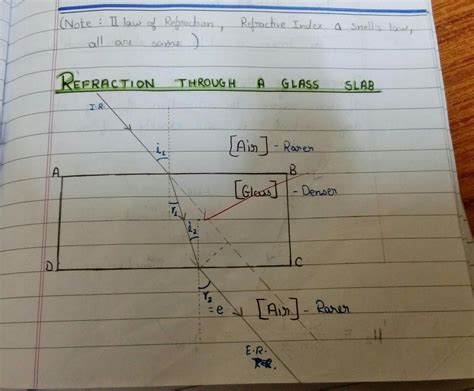 (Note : II law of Refraction, Refractive Index & Snell's law,
all are same)
REFRACTION THROUGH A GLASS SLAB
I.R.
i₁
[Air] - Rarer
A
B
[Glass] - Denser
r₁
i₂
D
C
r₂
= e
[Air] - Rarer
E.R.